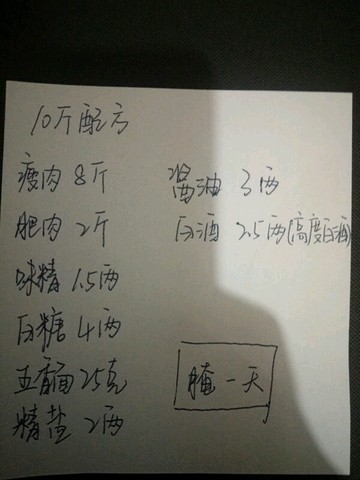 10斤配方
瘦肉8斤
肥肉2斤
味精1.5两
白糖4两
五香面25克
精盐2两
酱油3两
白酒2.5两(高度白酒)
腌一天